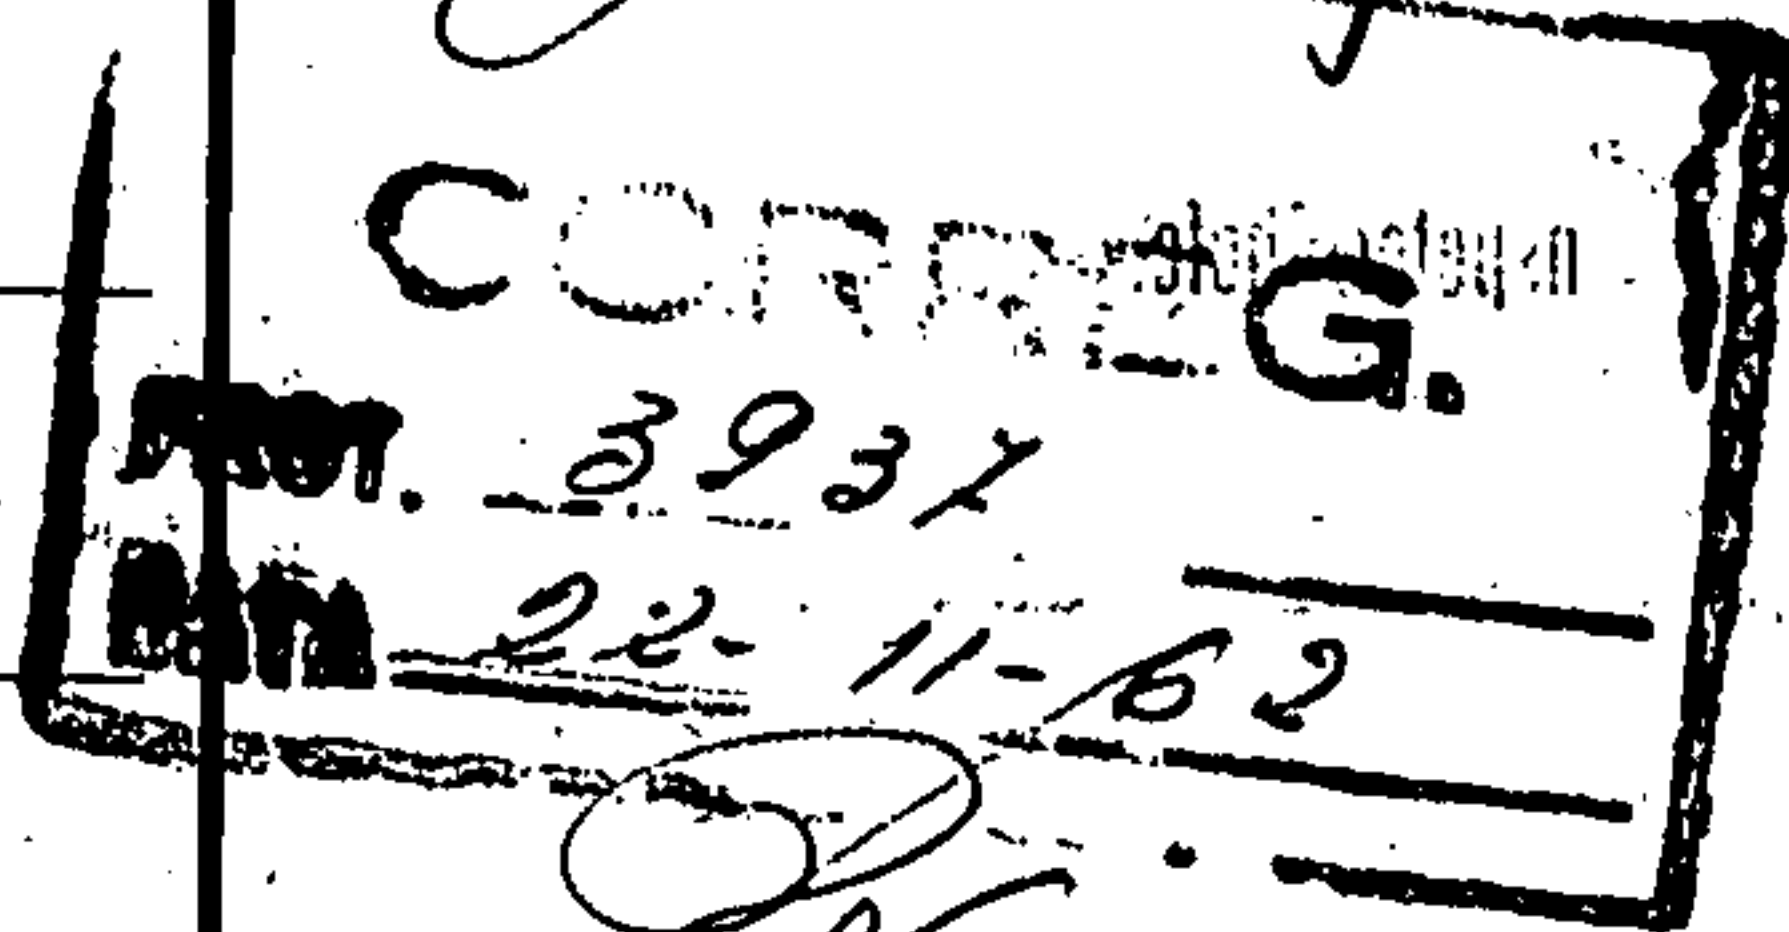 CORREG.
PROT. 3937
DATA 22-11-62